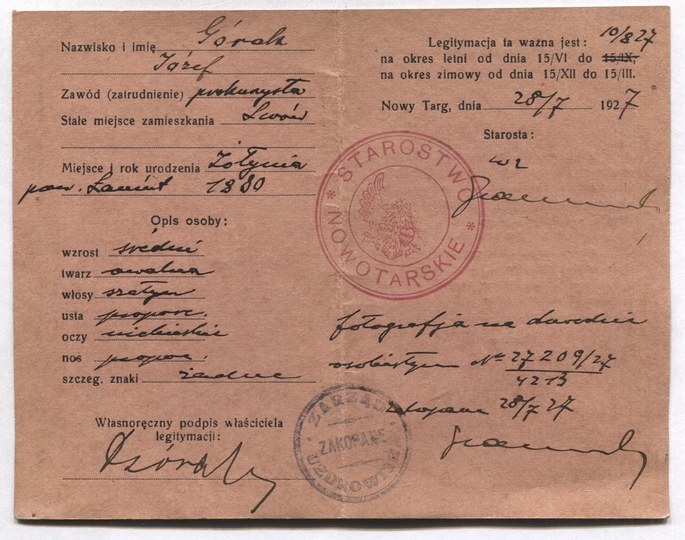 Nazwisko i imię Górak
Józef
Zawód (zatrudnienie) prokurysta
Stałe miejsce zamieszkania Lwów
Miejsce i rok urodzenia Żołynia
pow. Łańcut 1880
Opis osoby:
wzrost średni
twarz owalna
włosy szatyn
usta propor.
oczy niebieskie
nos propor.
szczeg. znaki żadne
Własnoręczny podpis właściciela
legitymacji:
JGórak
10/8 27
Legitymacja ta ważna jest:
na okres letni od dnia 15/VI do 15/IX,
na okres zimowy od dnia 15/XII do 15/III.
Nowy Targ, dnia 28/7 1927
Starosta:
wz
STAROSTWO NOWOTARSKIE
fotografja na dowodzie
osobistym No 27209/27
4213
Zakopane 28/7 27
ZARZĄD UZDROWISKA
ZAKOPANE